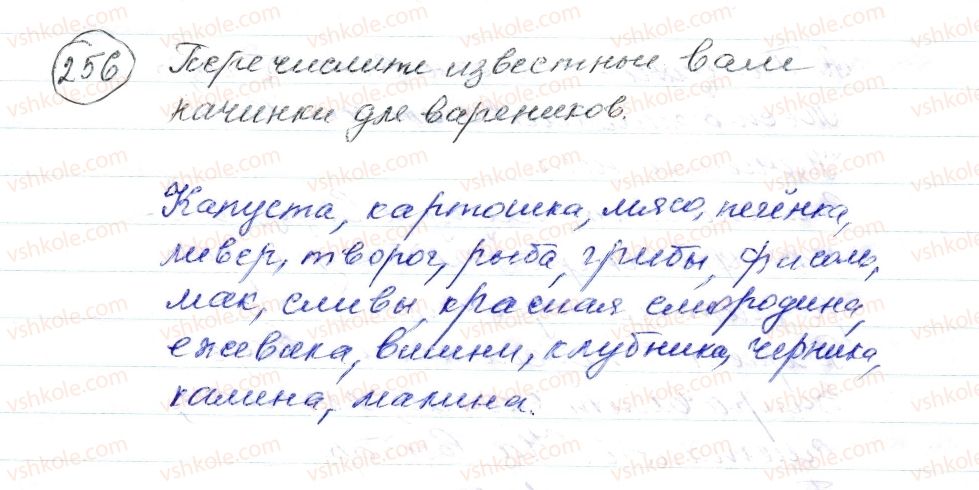 256 Перечислите известные вам
начинки для вареников.
Капуста, картошка, мясо, печёнка,
ливер, творог, рыба, грибы, фасоль,
мак, сливы, красная смородина,
ежевика, вишни, клубника, черника,
калина, малина.